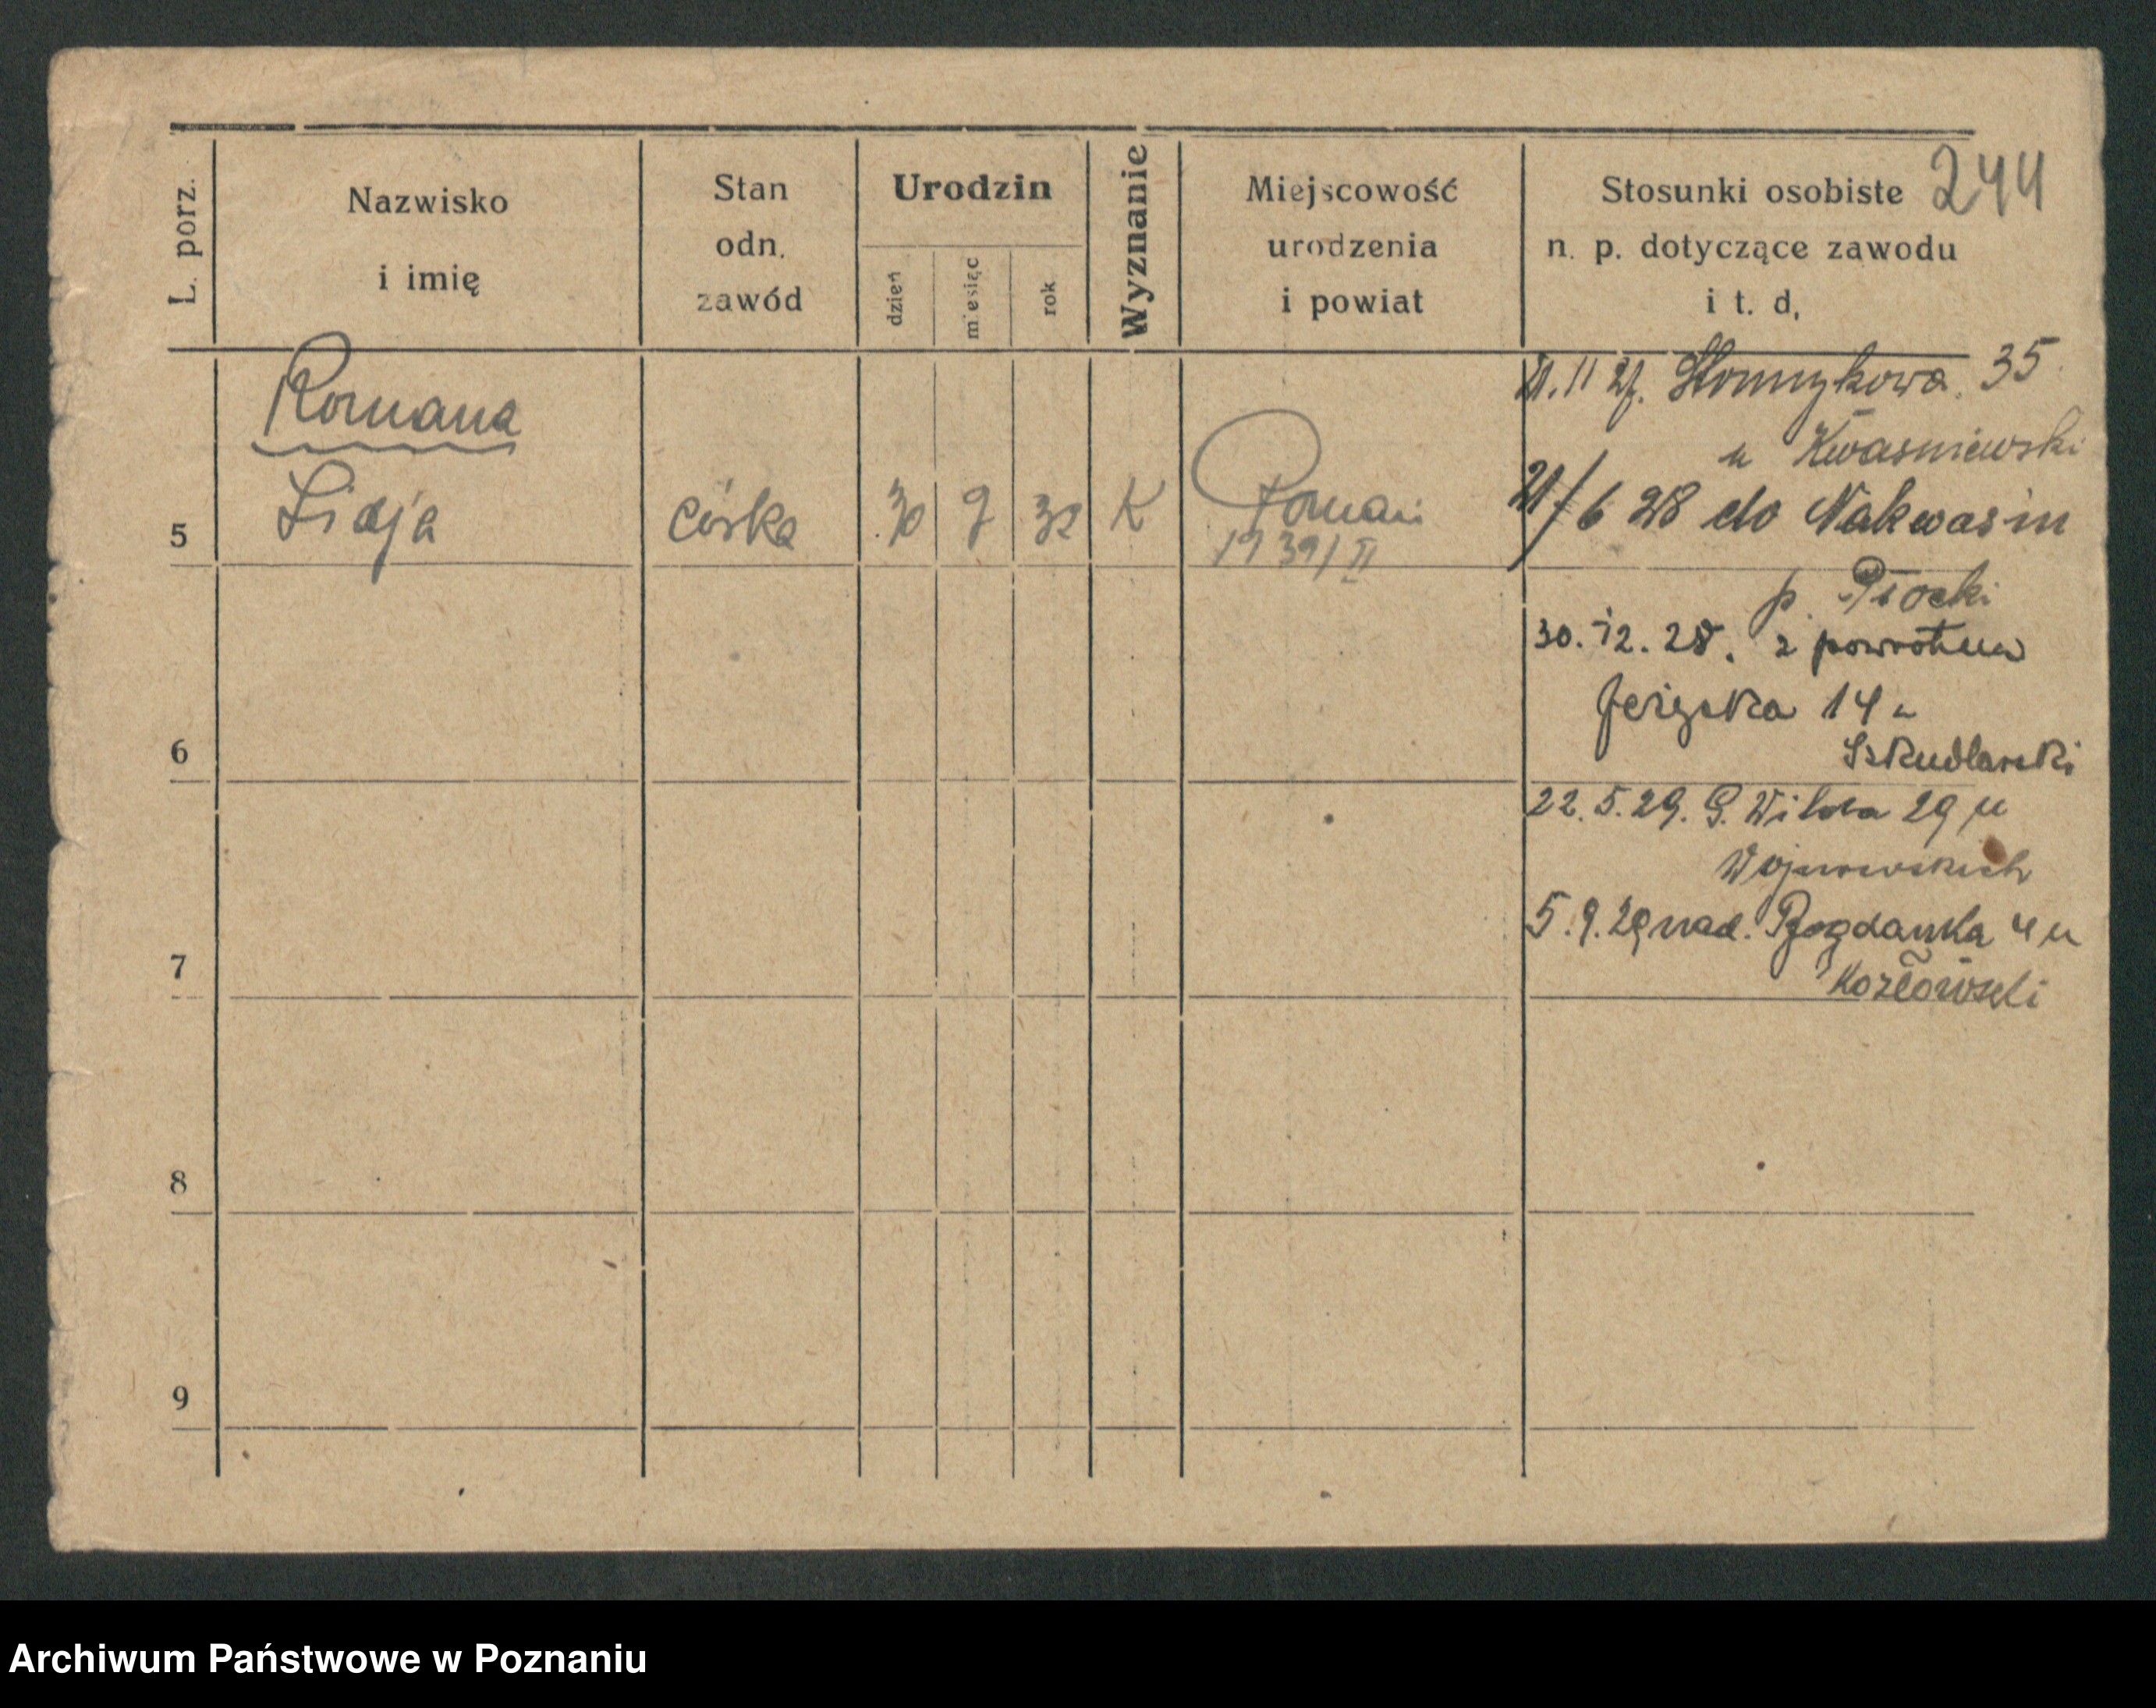 244
L. porz.
Nazwisko
i imię
Stan
odn.
zawód
Urodzin
dzień
miesiąc
rok
Wyznanie
Miejscowość
urodzenia
i powiat
Stosunki osobiste
n. p. dotyczące zawodu
i t. d.
5
Romana
Lidja
córka
30
9
32
K
Poznań
1939/II
6
7
8
9
21.11 27. 35
u Kwasniewski
21/6 28 do Nakwasin
p.
30.12.28. z powrotem
Jeżycka 14 u
Szkudlarski
22.5.29. G. Wilda 29 u
5.9.29 nad. Bogdanka 4 u
Kozłowski
Archiwum Państwowe w Poznaniu